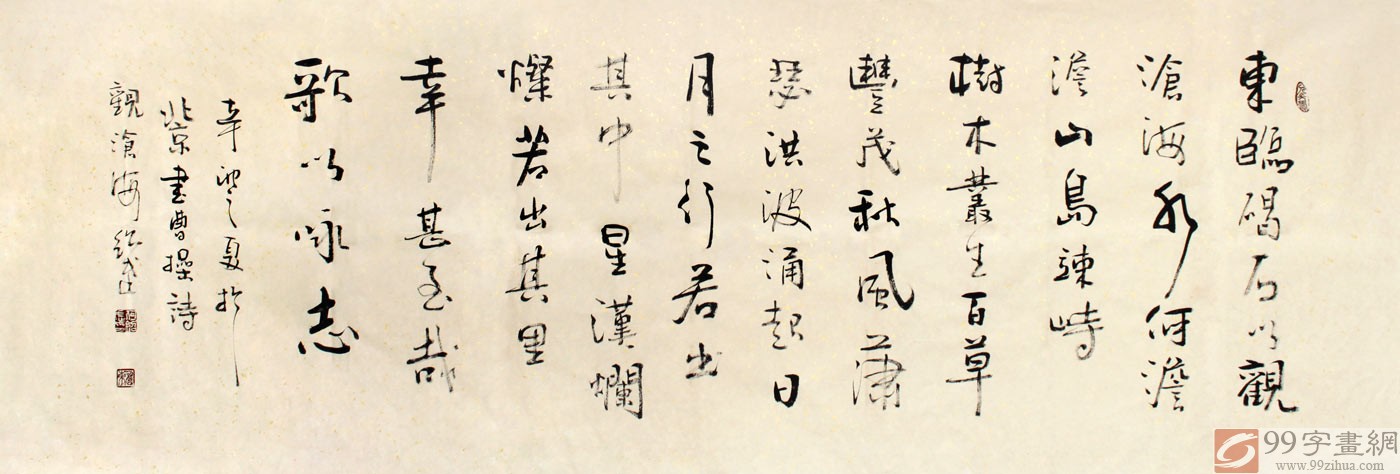 東臨碣石以觀
滄海水何澹
澹山島竦峙
樹木叢生百草
豐茂秋風蕭
瑟洪波涌起日
月之行若出
其中星漢爛
燦若出其里
幸甚至哉
歌以咏志
辛卯之夏於
北京書曹操詩
觀滄海
99字畫網
www.99zihua.com